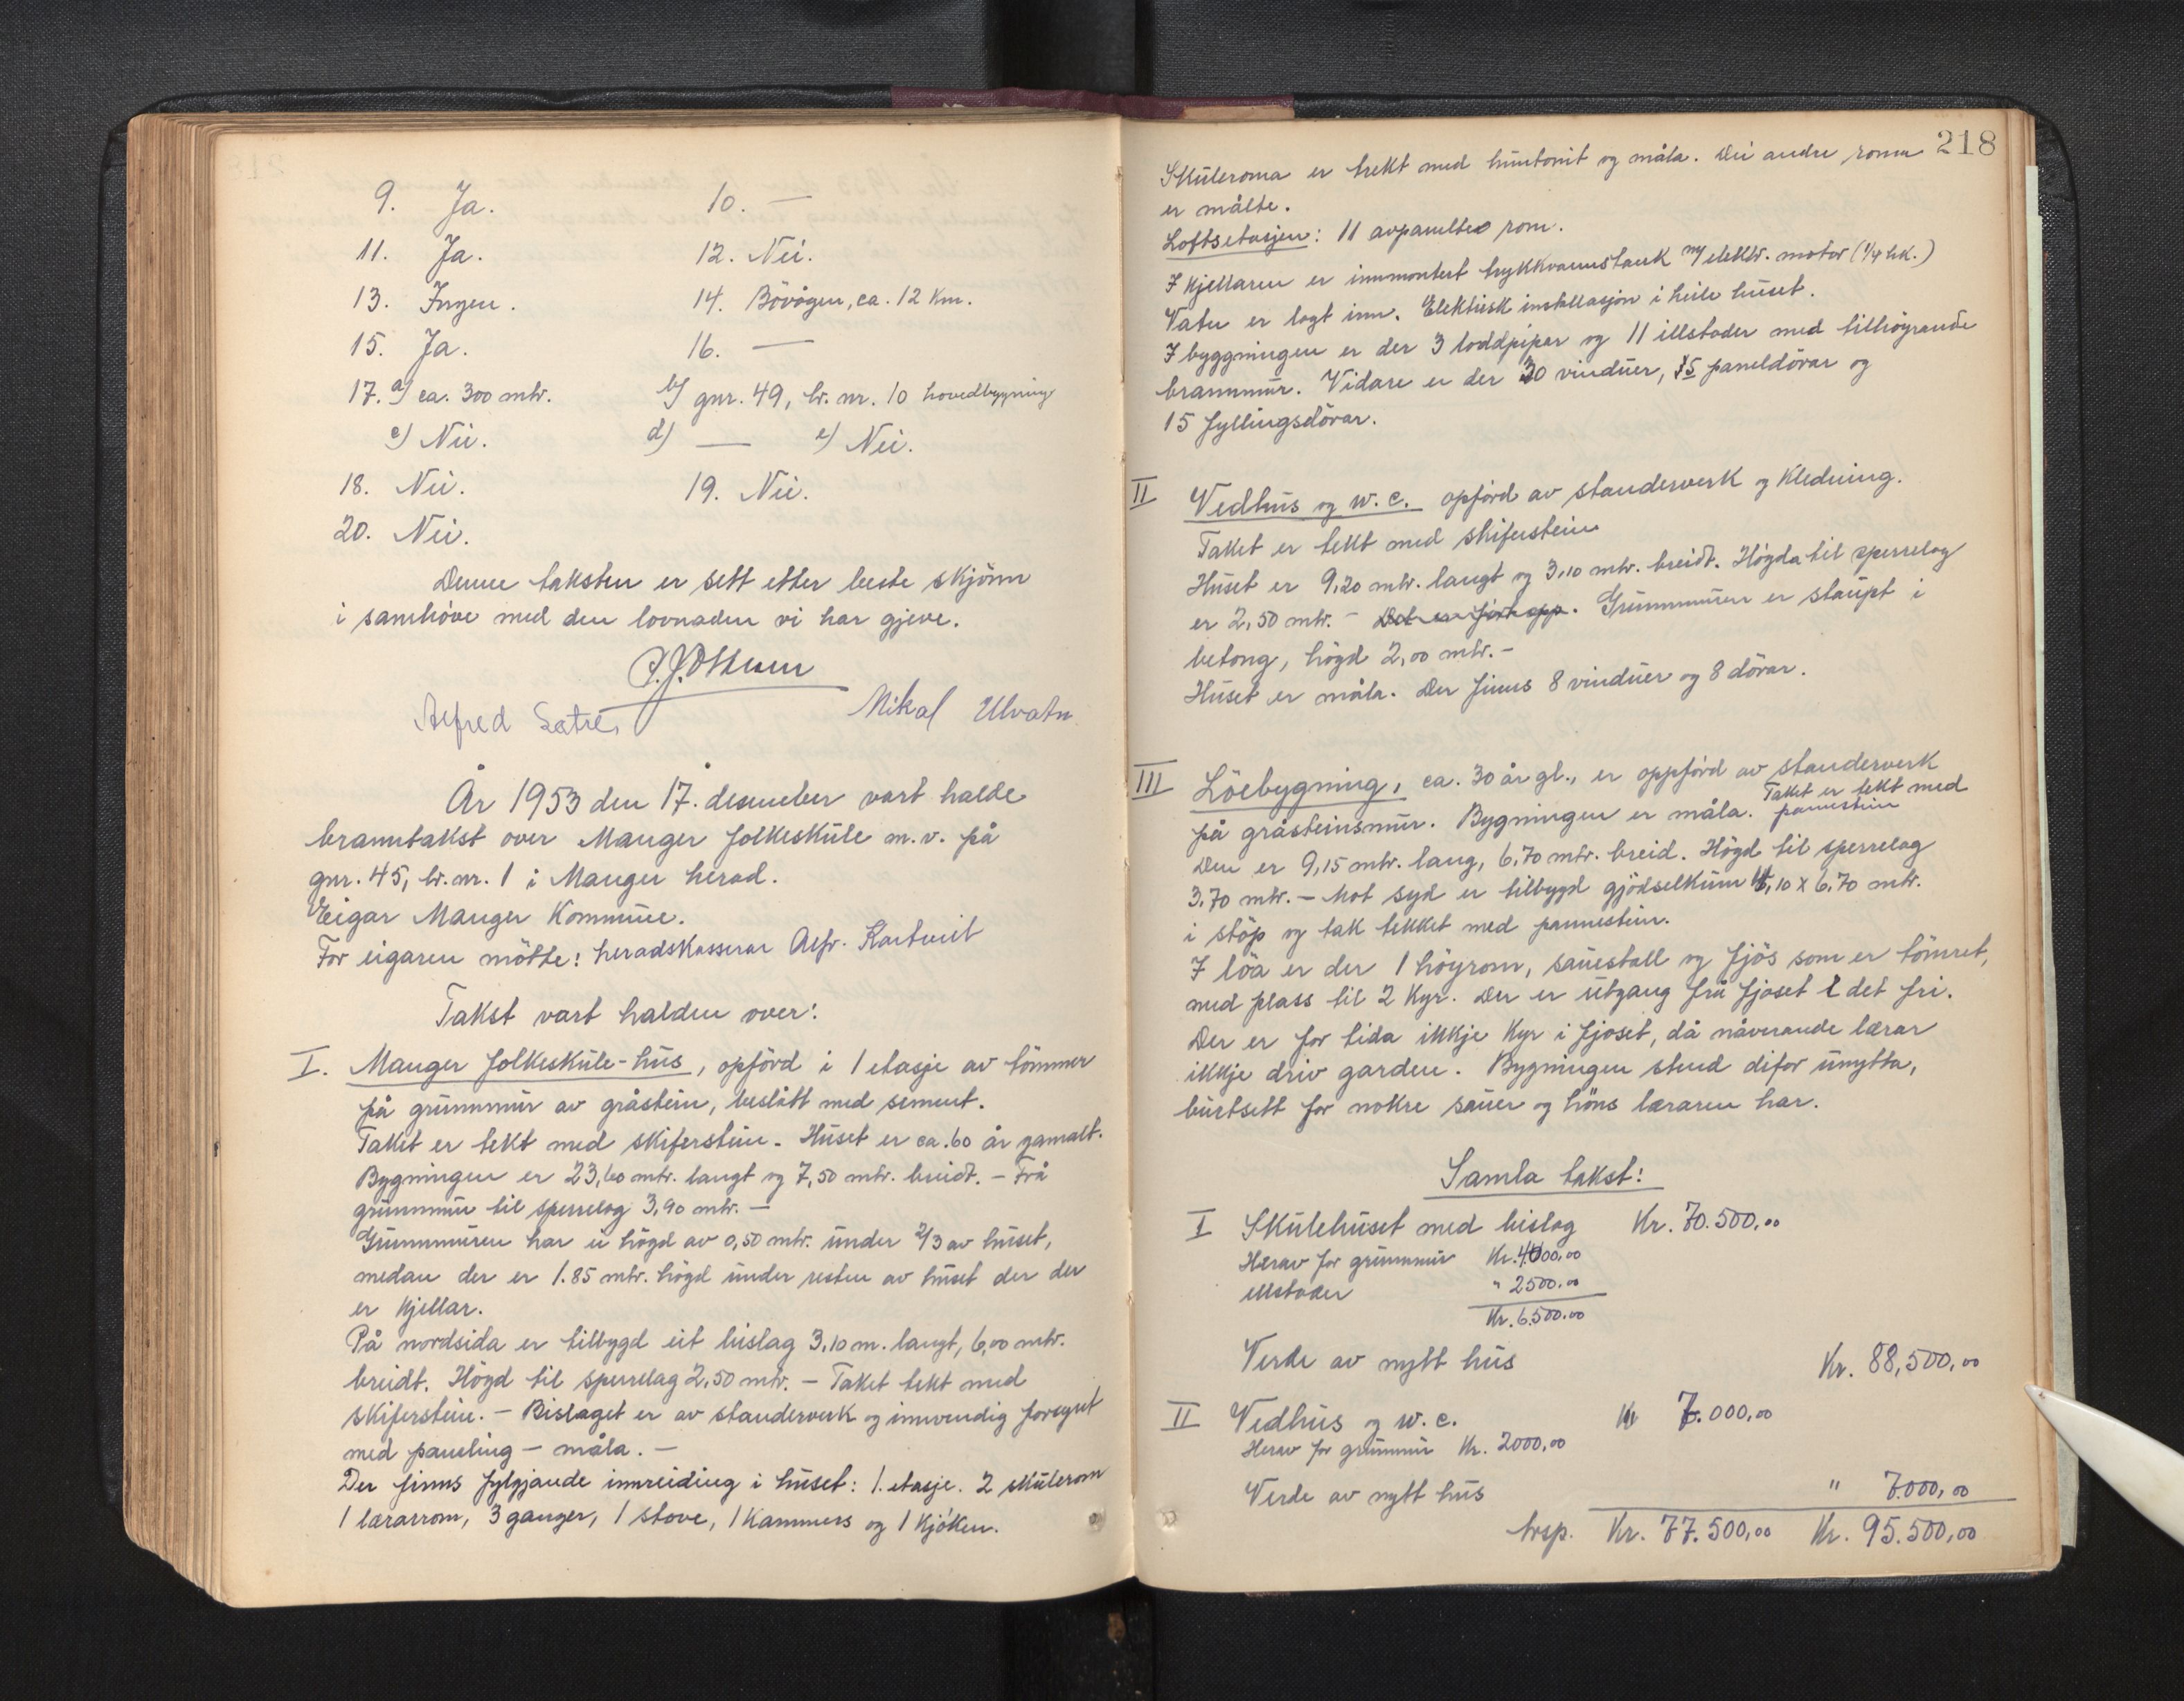 9. Ja. 10. —
11. Ja. 12. Nei.
13. Ingen. 14. Bövågen, ca. 12 km.
15. Ja. 16. —
17. a) ca. 300 mtr. b) gnr. 49, br. nr. 10 hovedbygning
c) Nei. d) — e) Nei.
18. Nei. 19. Nei.
20. Nei.
Denne taksten er sett etter beste skjönn
i samhöve med den lovnaden vi har gjeve.
Alfred Sætre, Mikal Ulvatn
År 1953 den 17. desember vart halde
branntakst over Manger folkeskule m.v. på
gnr. 45, br. nr. 1 i Manger herad.
Eigar Manger Kommune.
For eigaren mötte: heradskasserar Alfr. Kartveit
Takst vart halden over:
I. Manger folkeskule-hus, opförd i 1 etasje av tömmer
på grunnmur av gråstein, beslått med sement.
Taket er tekt med skiferstein. Huset er ca. 60 år gamalt.
Bygningen er 23,60 mtr. langt og 7,50 mtr. breidt. — Frå
grunnmur til sperrelag 3,90 mtr. —
Grunnmuren har ei högd av 0,50 mtr. under 2/3 av huset,
medan der er 1.85 mtr. högd under resten av huset der der
er kjellar.
På nordsida er tilbygd eit bislag 3,10 m. langt, 6,00 mtr.
breidt. Högd til sperrelag 2,50 mtr. — Taket tekt med
skiferstein. — Bislaget er av standerverk og innvendig forsynt
med paneling — måla. —
Der finns fylgjande innreiding i huset: 1. etasje. 2 skulerom
1 lærarrom, 3 ganger, 1 stove, 1 kammers og 1 kjöken.
218
Skuleroma er trekt med huntonit og måla. Dei andre roma
er målte.
Loftsetasjen: 11 avpanelte rom.
I kjellaren er innmontert trykkvannstank m/ elektr. motor (1/4 hk.)
Vatn er lagt inn. Elektrisk installasjon i heile huset.
I byggningen er der 3 loddpipar og 11 illstader med tilhöyrande
brannmur. Vidare er der 30 vinduer, 15 paneldörar og
15 fyllingsdörar.
II Vedhus og w.c. opförd av standerverk og kledning.
Taket er tekt med skiferstein
Huset er 9,20 mtr. langt og 3,10 mtr. breidt. Högda til sperrelag
er 2,50 mtr. — Det er fört opp. Grunnmuren er staupt i
betong, högd 2,00 mtr. —
Huset er måla. Der finns 8 vinduer og 8 dörar.
III Löebygning, ca. 30 år gl., er oppförd av standerverk
på gråsteinsmur. Bygningen er måla. Taket er tekt med
pannestein
Den er 9,15 mtr. lang, 6,70 mtr. breid. Högd til sperrelag
3,70 mtr. — Mot syd er tilbygd gjödselkum 4,10 x 6,70 mtr.
i stöp og tak tekket med pannestein.
I löa er der 1 höyrom, sauestall og fjös som er tömret,
med plass til 2 kyr. Der er utgang frå fjoset t det fri.
Der er for tida ikkje kyr i fjoset, då nåverande lærar
ikkje driv garden. Bygningen stend difor unytta,
burtsett for nokre sauer og höns læraren har.
Samla takst:
I Skulehuset med bislag Kr. 70.500,00
Herav for grunnmur Kr. 4000.00
illstader " 2500.00
Kr. 6.500.00
Verde av nytt hus Kr. 88,500,00
II Vedhus og w.c. Kr 7.000,00
Herav for grunnmur Kr. 2000,00
Verde av nytt hus " 7.000,00
trsp. Kr. 77.500,00 Kr. 95.500,00